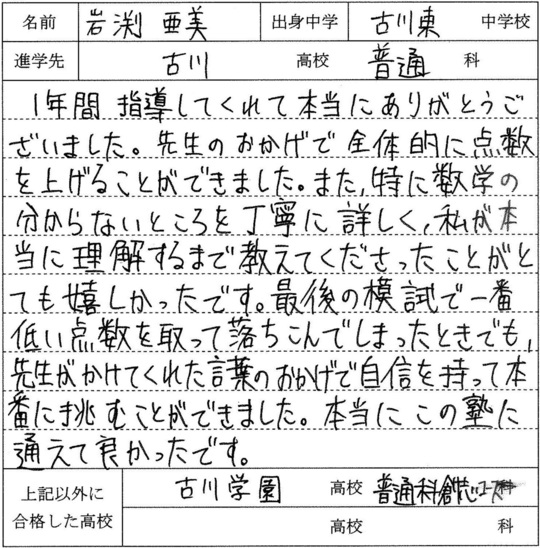 名前 岩渕 亜美 出身中学 古川東 中学校
進学先 古川 高校 普通 科
1年間 指導してくれて本当にありがとうご
ざいました。先生のおかげで全体的に点数
を上げることができました。また、特に数学の
分からないところを丁寧に詳しく、私が本
当に理解するまで教えてくださったことがと
ても嬉しかったです。最後の模試で一番
低い点数を取って落ちこんでしまったときでも、
先生がかけてくれた言葉のおかげで自信を持って本
番に挑むことができました。本当にこの塾に
通えて良かったです。
上記以外に合格した高校 古川学園 高校 普通科創志コース
高校 科